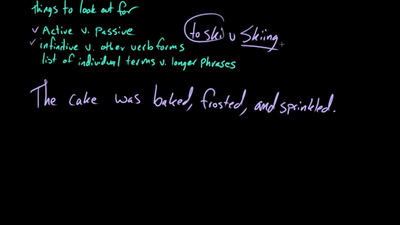 things to look out for
✓ Active v. Passive
✓ infinitive v. other verb forms
list of individual terms v. longer phrases
to ski v skiing
The cake was baked, frosted, and sprinkled.